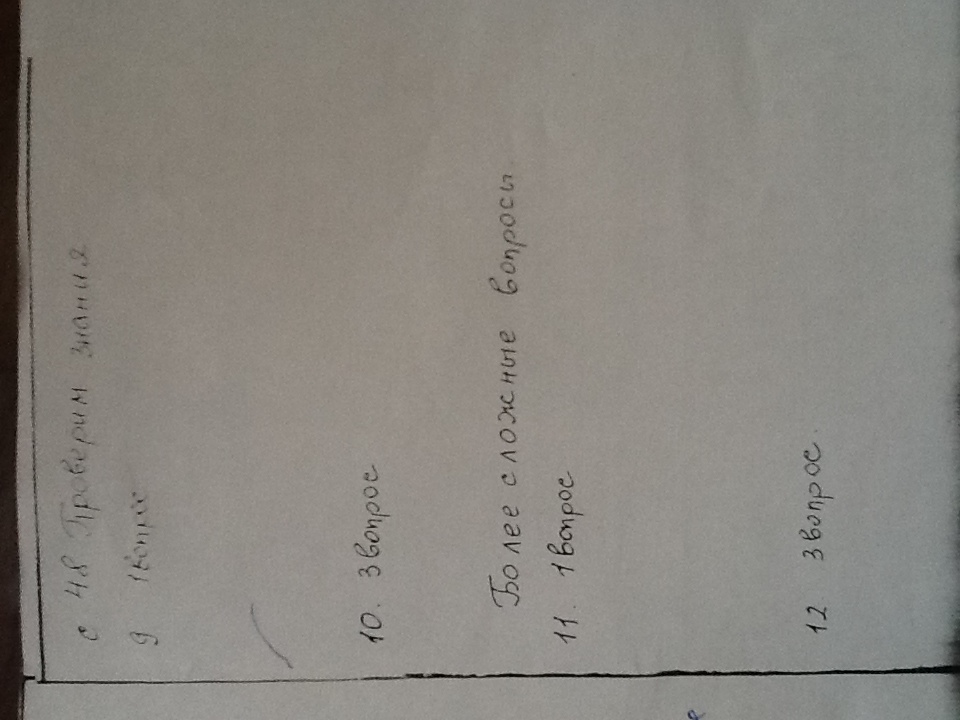 с 48 Проверим знания
9 1вопрос
10. 3вопрос
Более сложные вопросы.
11. 1вопрос
12 3вопрос.